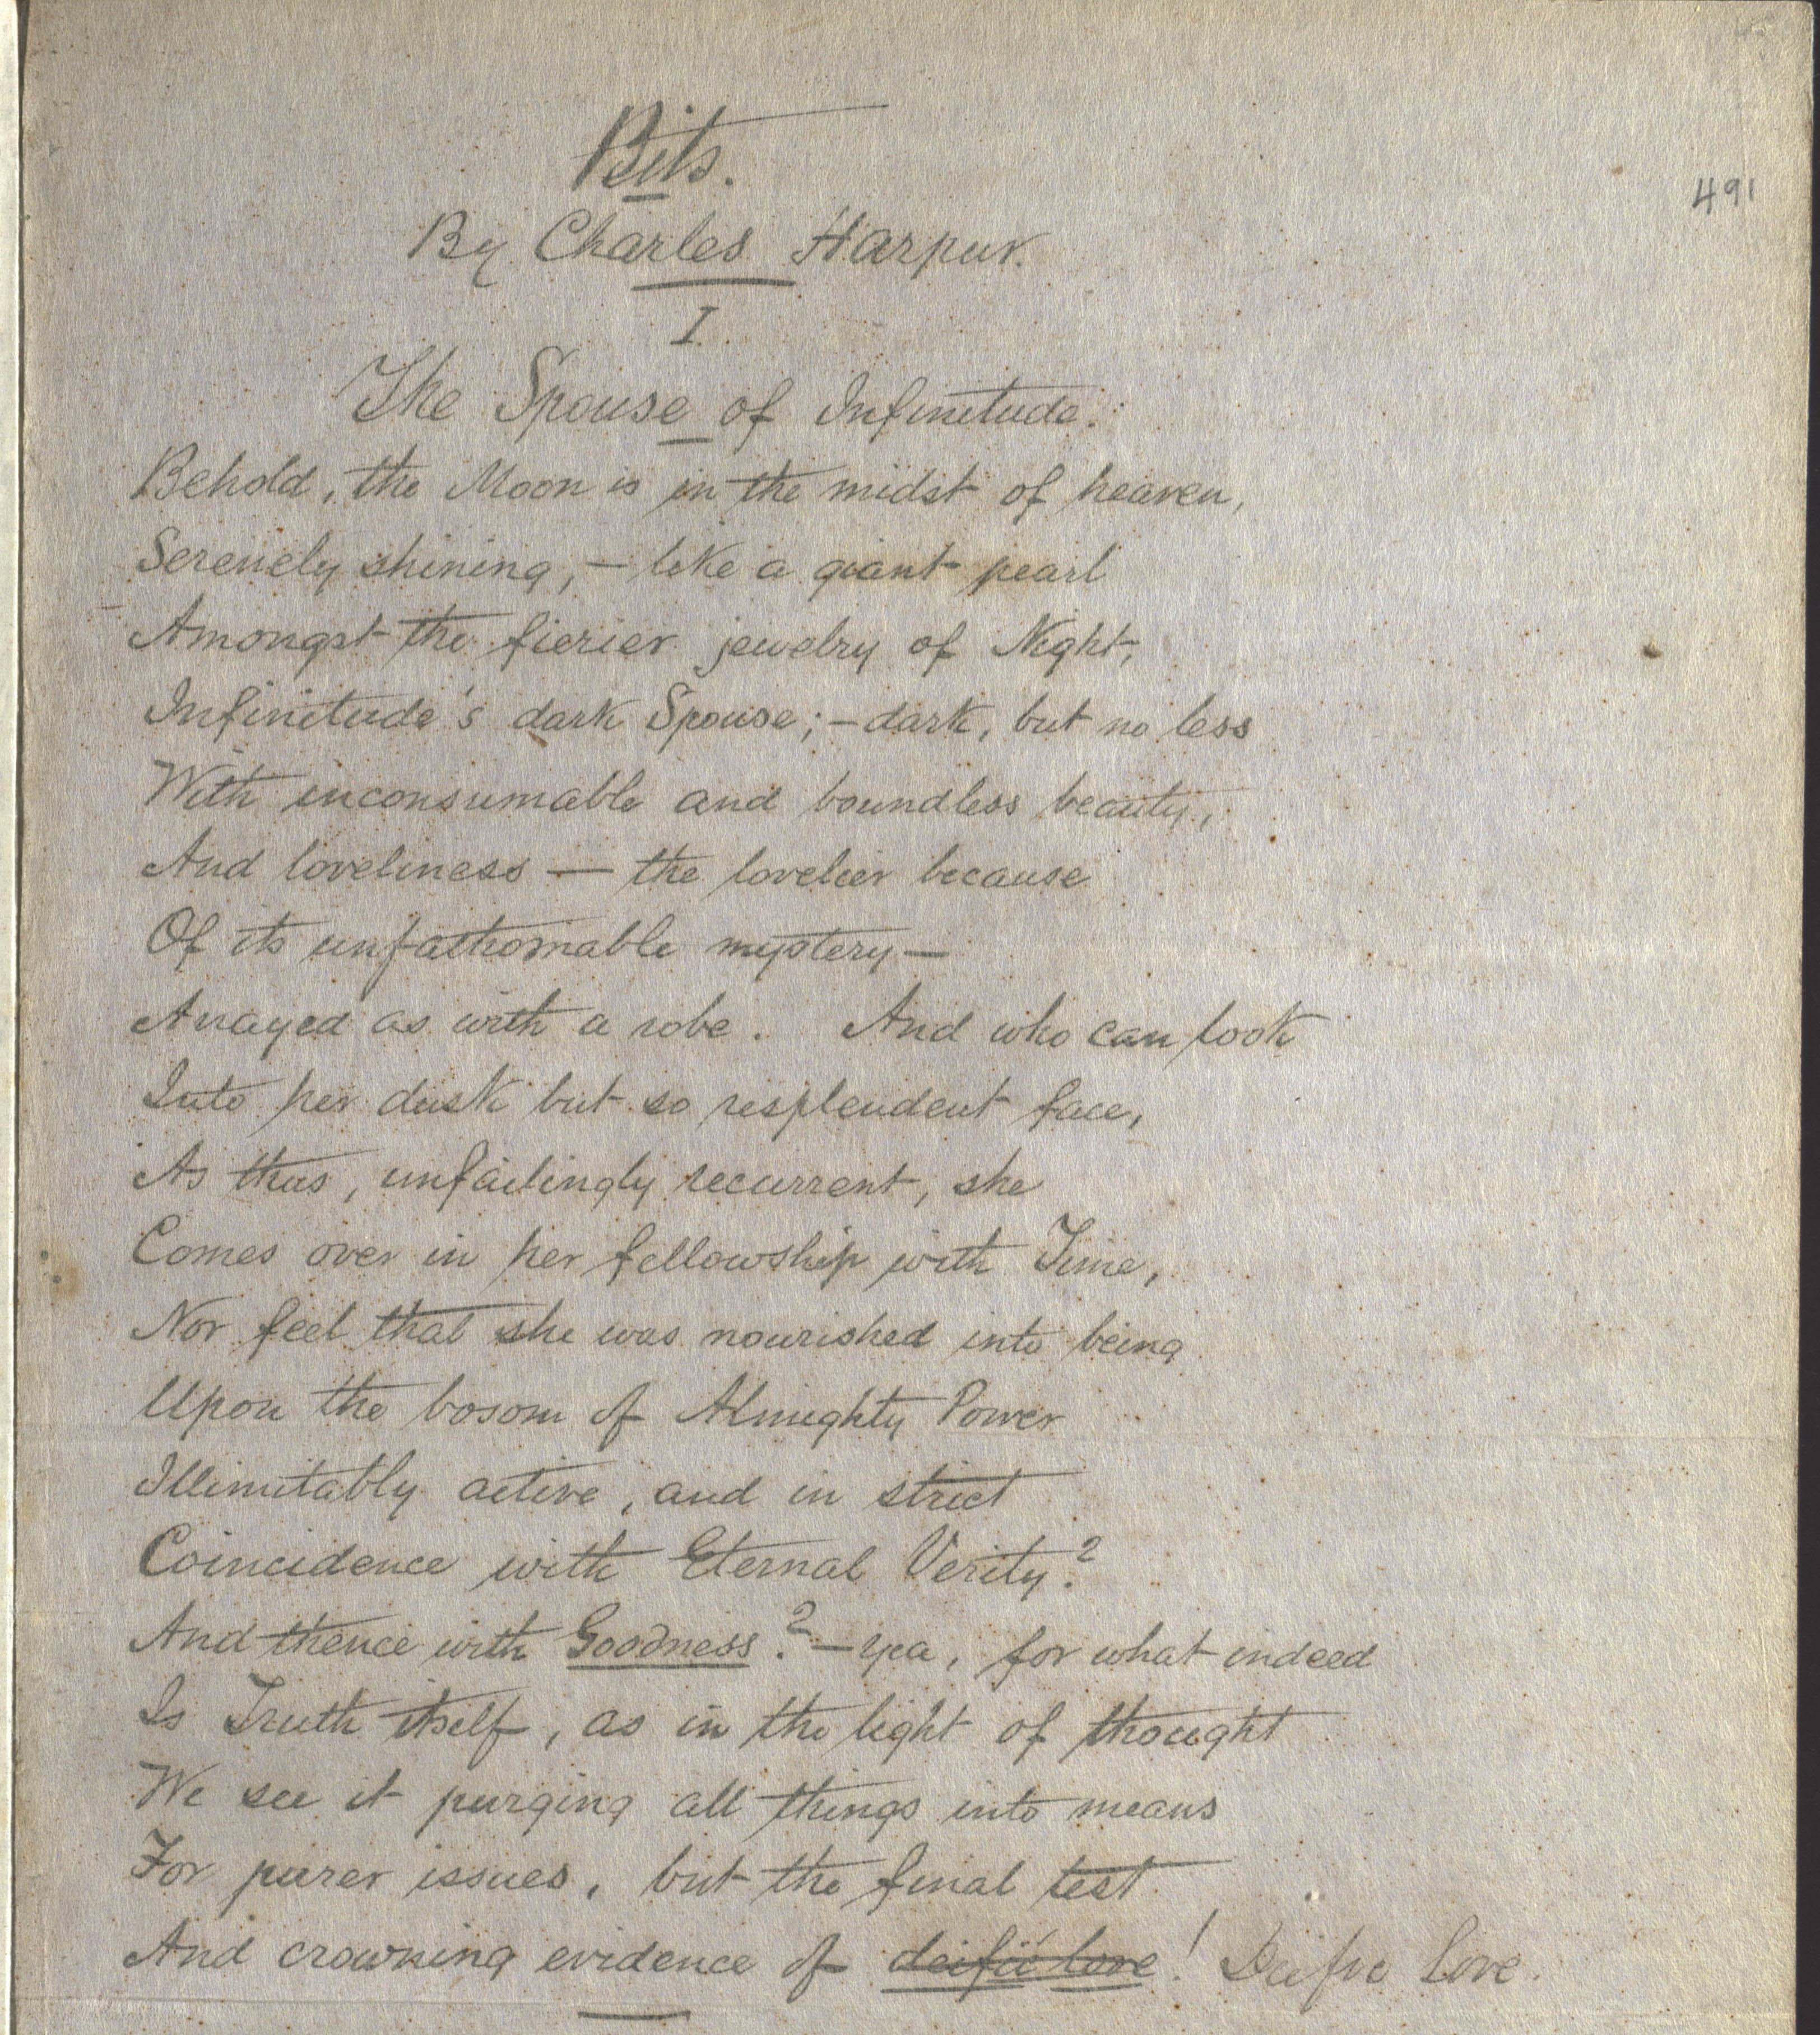 Bits.
491
By Charles Harpur.
I.
The Spouse of Infinitude.
Behold, the Moon is in the midst of heaven,
Serenely shining, — like a giant pearl
Amongst the fierier jewelry of Night,
Infinitude's dark Spouse; — dark, but no less
With inconsumable and boundless beauty,
And loveliness — the lovelier because
Of its unfathomable mystery —
Arrayed as with a robe. And who can look
Into her dusk but so resplendent face,
As thus, unfailingly recurrent, she
Comes over in her fellowship with Time,
Nor feel that she was nourished into being
Upon the bosom of Almighty Power
Illimitably active, and in strict
Coincidence with Eternal Verity?
And thence with Goodness? — yea, for what indeed
Is Truth itself, as in the light of thought
We see it purging all things into means
For purer issues, but the final test
And crowning evidence of deific love! Deific Love.